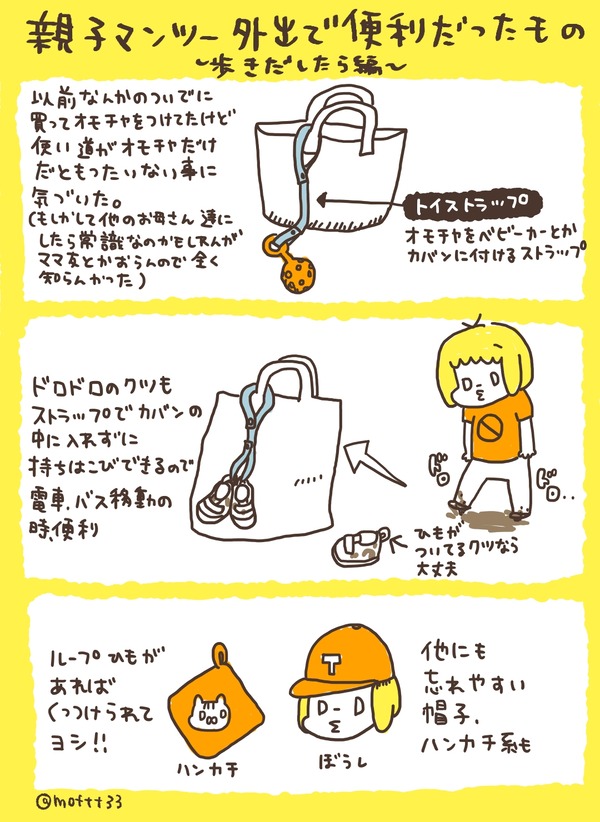 親子マンツー外出で便利だったもの
〜歩きだしたら編〜
以前なんかのついでに
買ってオモチャをつけてたけど
使い道がオモチャだけ
だともったいない事に
気づいた。
(もしかして他のお母さん達に
したら常識なのかもしれんが
ママ友とかおらんので全く
知らんかった)
トイストラップ
オモチャをベビーカーとか
カバンに付けるストラップ
ドロドロのクツも
ストラップでカバンの
中に入れずに
持ちはこびできるので
電車、バス移動の
時、便利
ドロ
ドロ..
ひもが
ついてるクツなら
大丈夫
ループひもが
あれば
くっつけられて
ヨシ!!
ハンカチ
T
ぼうし
他にも
忘れやすい
帽子、
ハンカチ系も
@moftt33